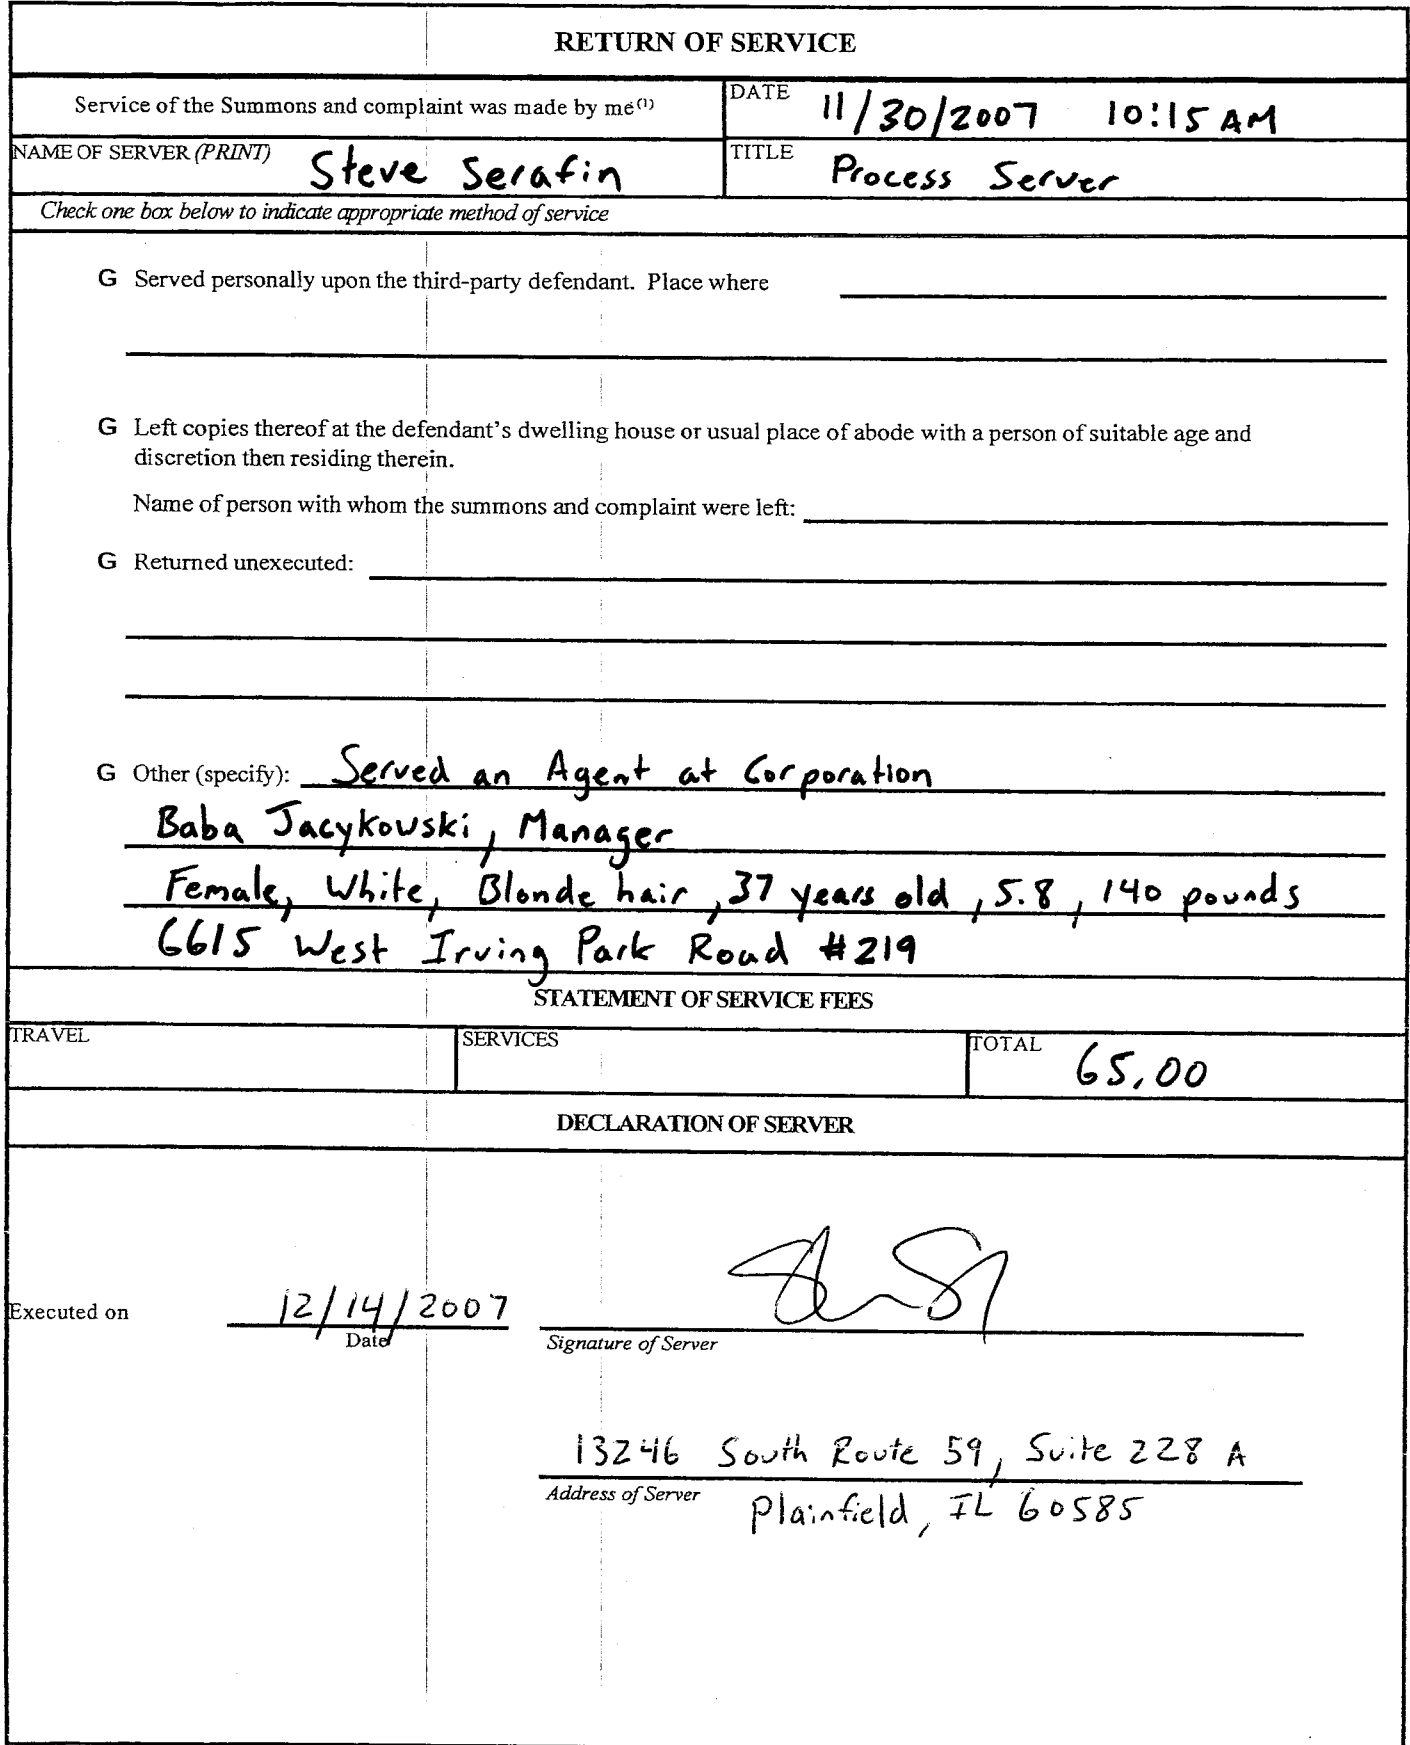 RETURN OF SERVICE
Service of the Summons and complaint was made by me(1)
DATE 11/30/2007 10:15 AM
NAME OF SERVER (PRINT) Steve Serafin
TITLE Process Server
Check one box below to indicate appropriate method of service
G Served personally upon the third-party defendant. Place where
G Left copies thereof at the defendant's dwelling house or usual place of abode with a person of suitable age and
discretion then residing therein.
Name of person with whom the summons and complaint were left:
G Returned unexecuted:
G Other (specify): Served an Agent at Corporation
Baba Jacykowski, Manager
Female, White, Blonde hair, 37 years old, 5.8, 140 pounds
6615 West Irving Park Road #219
STATEMENT OF SERVICE FEES
TRAVEL
SERVICES
TOTAL 65.00
DECLARATION OF SERVER
Executed on 12/14/2007
Date
Signature of Server
13246 South Route 59, Suite 228 A
Address of Server
Plainfield, IL 60585